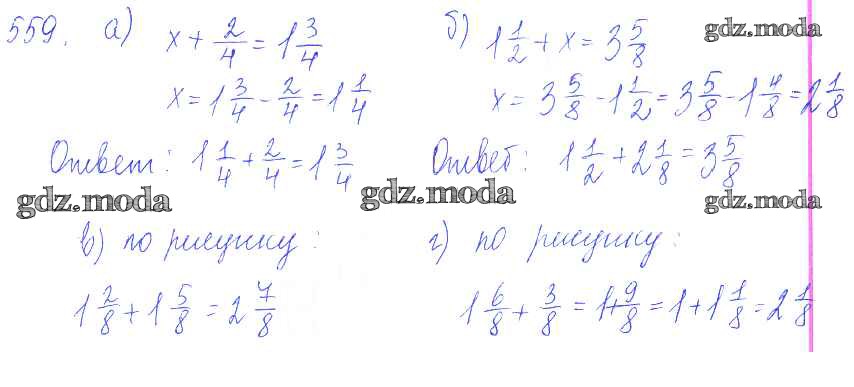 559. а) x + 2/4 = 1 3/4
x = 1 3/4 - 2/4 = 1 1/4
Ответ: 1 1/4 + 2/4 = 1 3/4
gdz.moda
б) 1 1/2 + x = 3 5/8
gdz.moda
x = 3 5/8 - 1 1/2 = 3 5/8 - 1 4/8 = 2 1/8
Ответ: 1 1/2 + 2 1/8 = 3 5/8
gdz.moda
gdz.moda
в) по рисунку:
1 2/8 + 1 5/8 = 2 7/8
г) по рисунку:
1 6/8 + 3/8 = 1+9/8 = 1 + 1 1/8 = 2 1/8